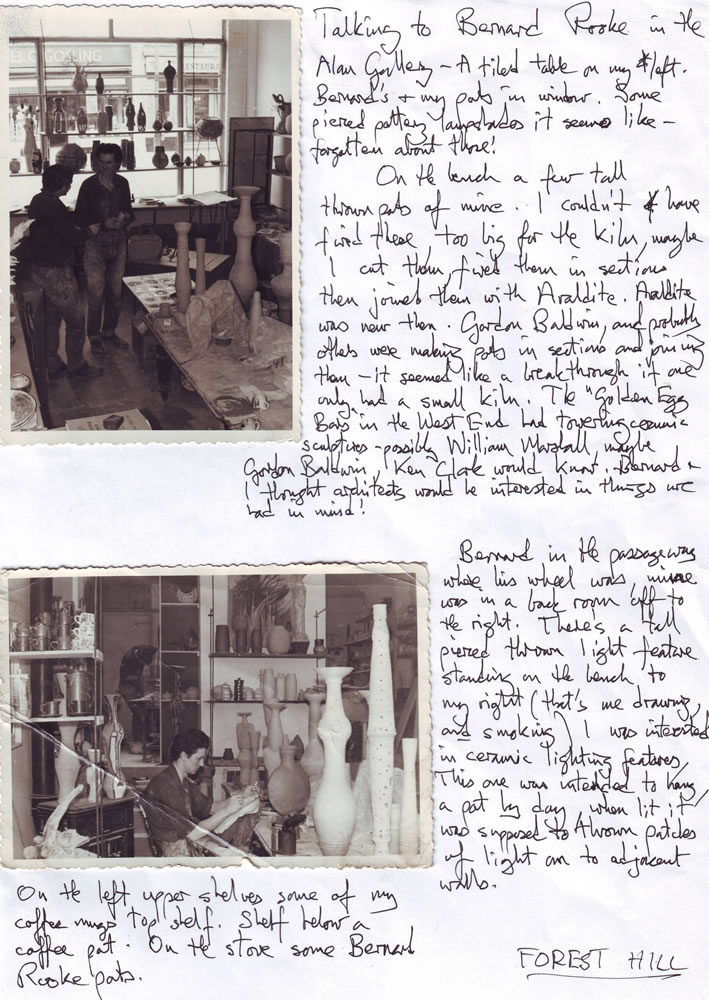 B. C. GOSLING
RESTAURA
Talking to Bernard Rooke in the
Alan Gallery – A tiled table on my left.
Bernard's + my pots in window. Some
pierced pottery lampshades it seems like –
forgotten about those!
On the bench a few tall
thrown pots of mine. I couldn't have
fired these too big for the kiln, maybe
I cut them, fired them in sections
then joined them with Araldite. Araldite
was new then. Gordon Baldwin, and probably
others were making pots in sections and joining
them – it seemed like a breakthrough if one
only had a small kiln. The "Golden Egg
Bars" in the West End had towering ceramic
sculptures – possibly William Marshall, maybe
Gordon Baldwin, Ken Clark would know. Bernard +
I thought architects would be interested in things we
had in mind!
Bernard in the passageway
where his wheel was, mine
was in a back room off to
the right. There's a tall
pierced thrown light feature
standing on the bench to
my right (that's me drawing,
and smoking) I was interested
in ceramic lighting features,
This one was intended to
a pot by day, when lit it
was supposed to thrown patches
of light on to adjacent
walls.
On the left upper shelves some of my
coffee mugs top shelf. Shelf below a
coffee pot. On the stove some Bernard
Rooke pots.
FOREST HILL